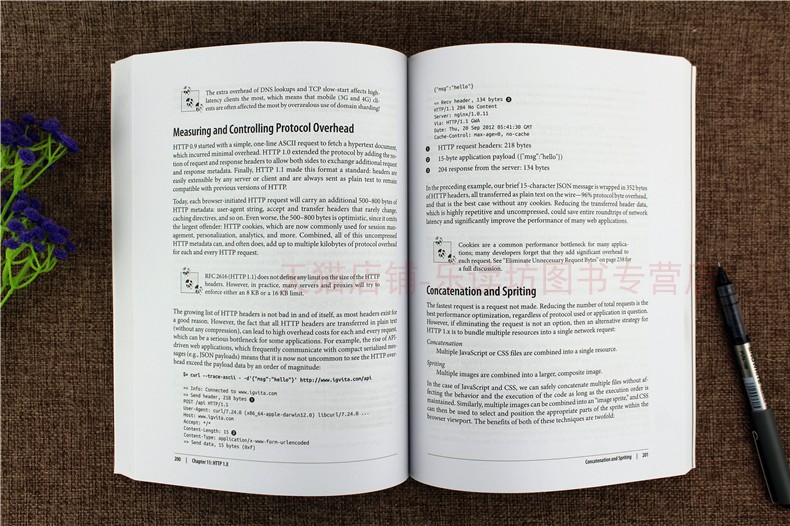 The extra overhead of DNS lookups and TCP slow-start affects high-
latency clients the most, which means that mobile (3G and 4G) cli-
ents are often affected the most by overzealous use of domain sharding!
Measuring and Controlling Protocol Overhead
HTTP 0.9 started with a simple, one-line ASCII request to fetch a hypertext document,
which incurred minimal overhead. HTTP 1.0 extended the protocol by adding the no-
tion of request and response headers to allow both sides to exchange additional request
and response metadata. Finally, HTTP 1.1 made this format a standard: headers are
easily extensible by any server or client and are always sent as plain text to remain
compatible with previous versions of HTTP.
Today, each browser-initiated HTTP request will carry an additional 500–800 bytes of
HTTP metadata: user-agent string, accept and transfer headers that rarely change,
caching directives, and so on. Even worse, the 500–800 bytes is optimistic, since it omits
the largest offender: HTTP cookies, which are now commonly used for session man-
agement, personalization, analytics, and more. Combined, all of this uncompressed
HTTP metadata can, and often does, add up to multiple kilobytes of protocol overhead
for each and every HTTP request.
RFC 2616 (HTTP 1.1) does not define any limit on the size of the HTTP
headers. However, in practice, many servers and proxies will try to
enforce either an 8 KB or a 16 KB limit.
The growing list of HTTP headers is not bad in and of itself, as most headers exist for
a good reason. However, the fact that all HTTP headers are transferred in plain text
(without any compression), can lead to high overhead costs for each and every request,
which can be a serious bottleneck for some applications. For example, the rise of API-
driven web applications, which frequently communicate with compact serialized mes-
sages (e.g., JSON payloads) means that it is now not uncommon to see the HTTP over-
head exceed the payload data by an order of magnitude:
$> curl --trace-ascii - -d'{"msg":"hello"}' http://www.igvita.com/api
== Info: Connected to www.igvita.com
=> Send header, 218 bytes ❶
POST /api HTTP/1.1
User-Agent: curl/7.24.0 (x86_64-apple-darwin12.0) libcurl/7.24.0 ...
Host: www.igvita.com
Accept: */*
Content-Length: 15 ❷
Content-Type: application/x-www-form-urlencoded
=> Send data, 15 bytes (0xf)
200 | Chapter 11: HTTP 1.X
{"msg":"hello"}
<= Recv header, 134 bytes ❸
HTTP/1.1 204 No Content
Server: nginx/1.0.11
Via: HTTP/1.1 GWA
Date: Thu, 20 Sep 2012 05:41:30 GMT
Cache-Control: max-age=0, no-cache
❶ HTTP request headers: 218 bytes
❷ 15-byte application payload ({"msg":"hello"})
❸ 204 response from the server: 134 bytes
In the preceding example, our brief 15-character JSON message is wrapped in 352 bytes
of HTTP headers, all transferred as plain text on the wire—96% protocol byte overhead,
and that is the best case without any cookies. Reducing the transferred header data,
which is highly repetitive and uncompressed, could save entire roundtrips of network
latency and significantly improve the performance of many web applications.
Cookies are a common performance bottleneck for many applica-
tions; many developers forget that they add significant overhead to
each request. See "Eliminate Unnecessary Request Bytes" on page 238 for
a full discussion.
Concatenation and Spriting
The fastest request is a request not made. Reducing the number of total requests is the
best performance optimization, regardless of protocol used or application in question.
However, if eliminating the request is not an option, then an alternative strategy for
HTTP 1.x is to bundle multiple resources into a single network request:
Concatenation
Multiple JavaScript or CSS files are combined into a single resource.
Spriting
Multiple images are combined into a larger, composite image.
In the case of JavaScript and CSS, we can safely concatenate multiple files without af-
fecting the behavior and the execution of the code as long as the execution order is
maintained. Similarly, multiple images can be combined into an "image sprite," and CSS
can then be used to select and position the appropriate parts of the sprite within the
browser viewport. The benefits of both of these techniques are twofold:
Concatenation and Spriting | 201
天猫店铺 图书专营店